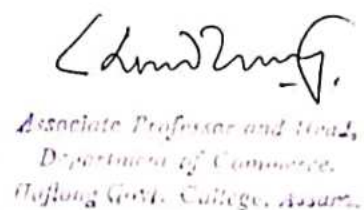 Associate Professor and Head,
Department of Commerce,
Haflong Govt. College, Assam.